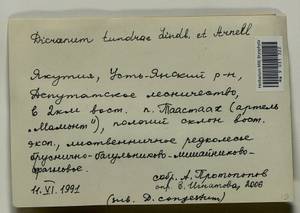 Dicranum tundrae Lindb. et Arnell
Якутия, Усть-Янский р-н,
Депутатское лесничество,
в 2км вост. п. Таастаах (артель
„Мамонт"), пологий склон вост.
эксп., лиственничное редколесье
бруснично-багульниково-лишайниково-
сфагновое.
собр. А. Протопопов
11.VI.1991
опр. Е. Игнатова, 2006